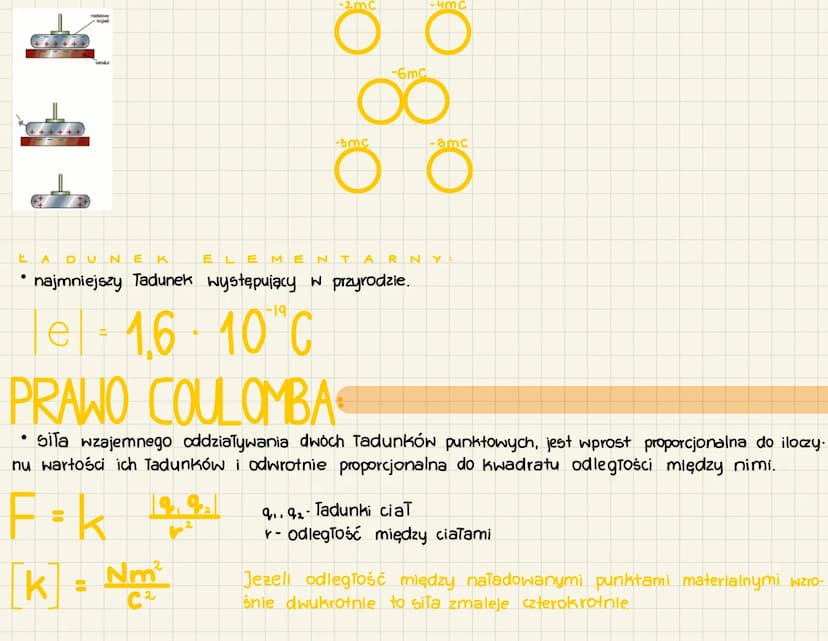 -2mC -4mC
metalowy krążek
-6mC
-3mC -3mC
ŁADUNEK ELEMENTARNY:
• najmniejszy ładunek występujący w przyrodzie.
|e| = 1,6 · 10⁻¹⁹ C
PRAWO COULOMBA:
• siła wzajemnego oddziaływania dwóch ładunków punktowych, jest wprost proporcjonalna do iloczy-
nu wartości ich ładunków i odwrotnie proporcjonalna do kwadratu odległości między nimi.
F = k |q₁ q₂| / r²
q₁, q₂ - ładunki ciał
r - odległość między ciałami
[k] = Nm² / C²
Jeżeli odległość między naładowanymi punktami materialnymi wzro-
śnie dwukrotnie to siła zmaleje czterokrotnie